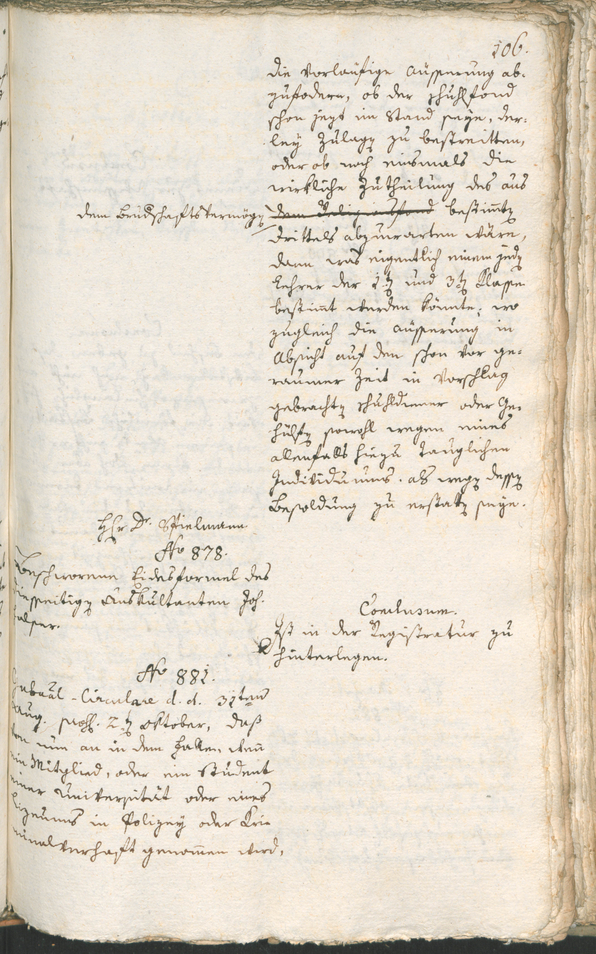 106.
die vorläufige Äusserung ab-
zufodern, ob der Schuhlfond
schon jezt im Stand seye, der-
ley Zulagen zu bestreitten,
oder ob noch einsmals die
wirkliche Zutheilung des aus
dem Bruderschaftsvermögen
dem Religionsfond bestimten
Drittels abzuwarten wäre,
dann was eigentlich einem jeden
Lehrer der 2ten und 3ten Klasse
bestimt werden könnte; wo
zugleich die Äusserung in
Absicht auf den schon vor ge-
raumer Zeit in Vorschlag
gebrachten Schuhldiener oder Ge-
hülfen sowohl wegen eines
allenfalls hiezu tauglichen
Individuums, als wegen dessen
Besoldung zu erstatten seye.
Hhr. Dr. Spielmann
No 878.
Beschworene Eidesformel des
diesseitigen Auskultanten Joh.
Conclusum.
Ist in der Registratur zu
hinterlegen.
No 881.
Gubaal-Circulare d. d. 31ten
Aug. 2ten Oktober, daß
von nun an in dem Falle, wenn
ein Mitglied, oder ein Student
einer Universität oder eines
Lizeums in Polizey oder Kri-
minalverhaft genommen wird,